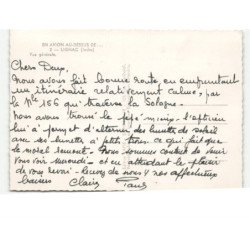 EN AVION AU-DESSUS DE ...
2 — LIGNAC (Indre)
Vue générale
Chers Deux,
Nous avons fait bonne route en empruntant
un itinéraire relativement calme, par
la Nle 156 qui traverse la Sologne.
nous avons trouvé le pépé mieux. l'opticien
lui a fourni et d'alterner des lunettes de soleil
avec ses lunettes à petits trous. ce qui fait que
le moral remonte. Nous sommes contents de
vous voir mercredi et en attendant le plaisir
de vous revoir recevez de nous 4 nos affectueux
baisers Claire Paul